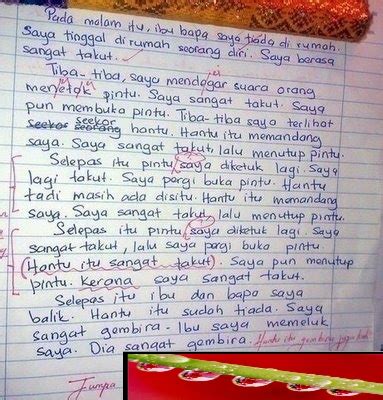 Pada malam itu, ibu bapa saya tiada di rumah.
Saya tinggal di rumah seorang diri. Saya berasa
sangat takut.
Tiba-tiba, saya mendogar suara orang
menetok pintu. Saya sangat takut. Saya
pun membuka pintu. Tiba-tiba saya terlihat
seekor
seekor seorang hantu. Hantu itu memandang
saya. Saya sangat takut lalu menutup pintu.
Selepas itu pintu saya diketuk lagi. Saya
lagi takut. Saya pargi buka pintu. Hantu
tadi masih ada disitu. Hantu itu memandang
saya. Saya sangat takut, lalu menutup pintu.
Selepas itu pintu saya diketuk lagi. Saya
sangat takut, lalu saya pargi buka pintu.
(Hantu itu sangat takut). Saya pun menutup
pintu. Kerana saya sangat takut.
Selepas itu ibu dan bapa saya
balik. Hantu itu sudah tiada. Saya
sangat gembira. Ibu saya memeluk
saya. Dia sangat gembira. Hantu itu
Jumpa